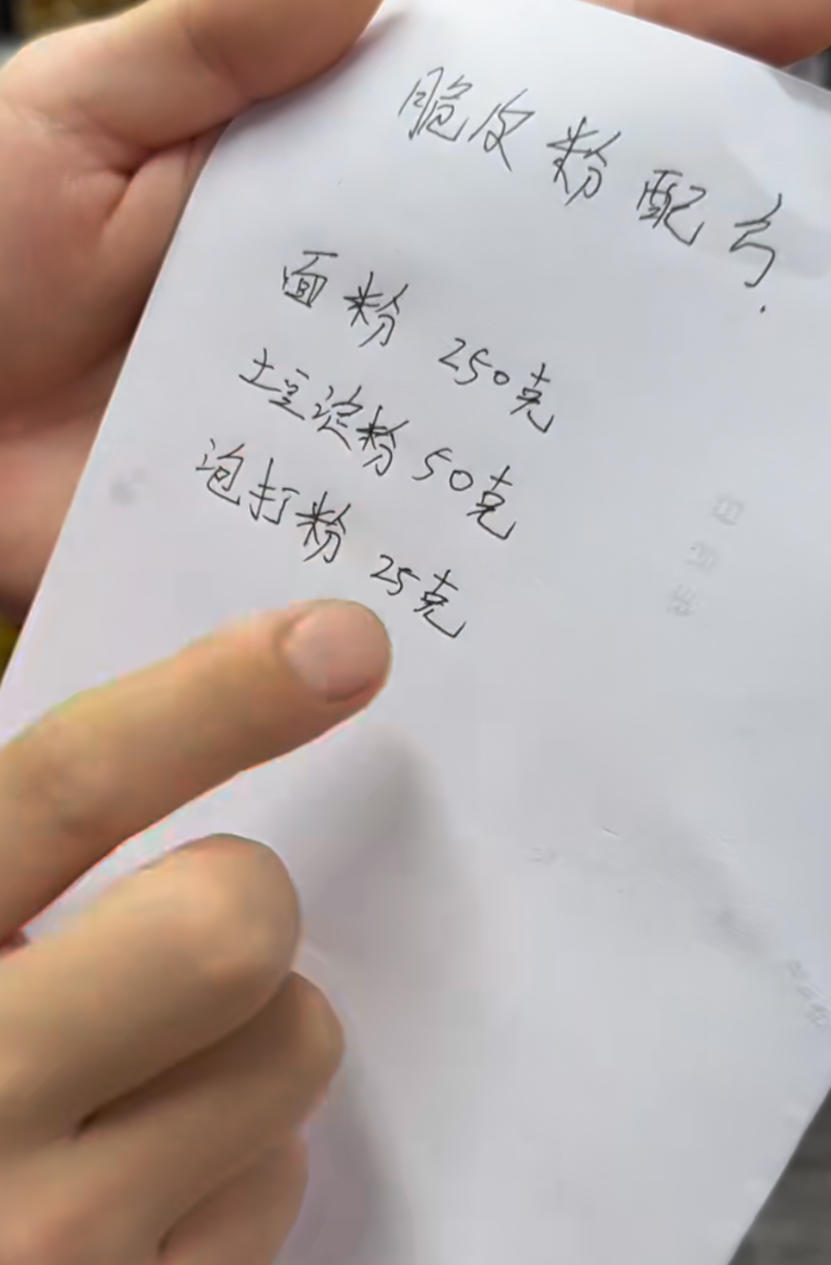 脆皮粉配方.
面粉 250克
土豆淀粉 50克
泡打粉 25克